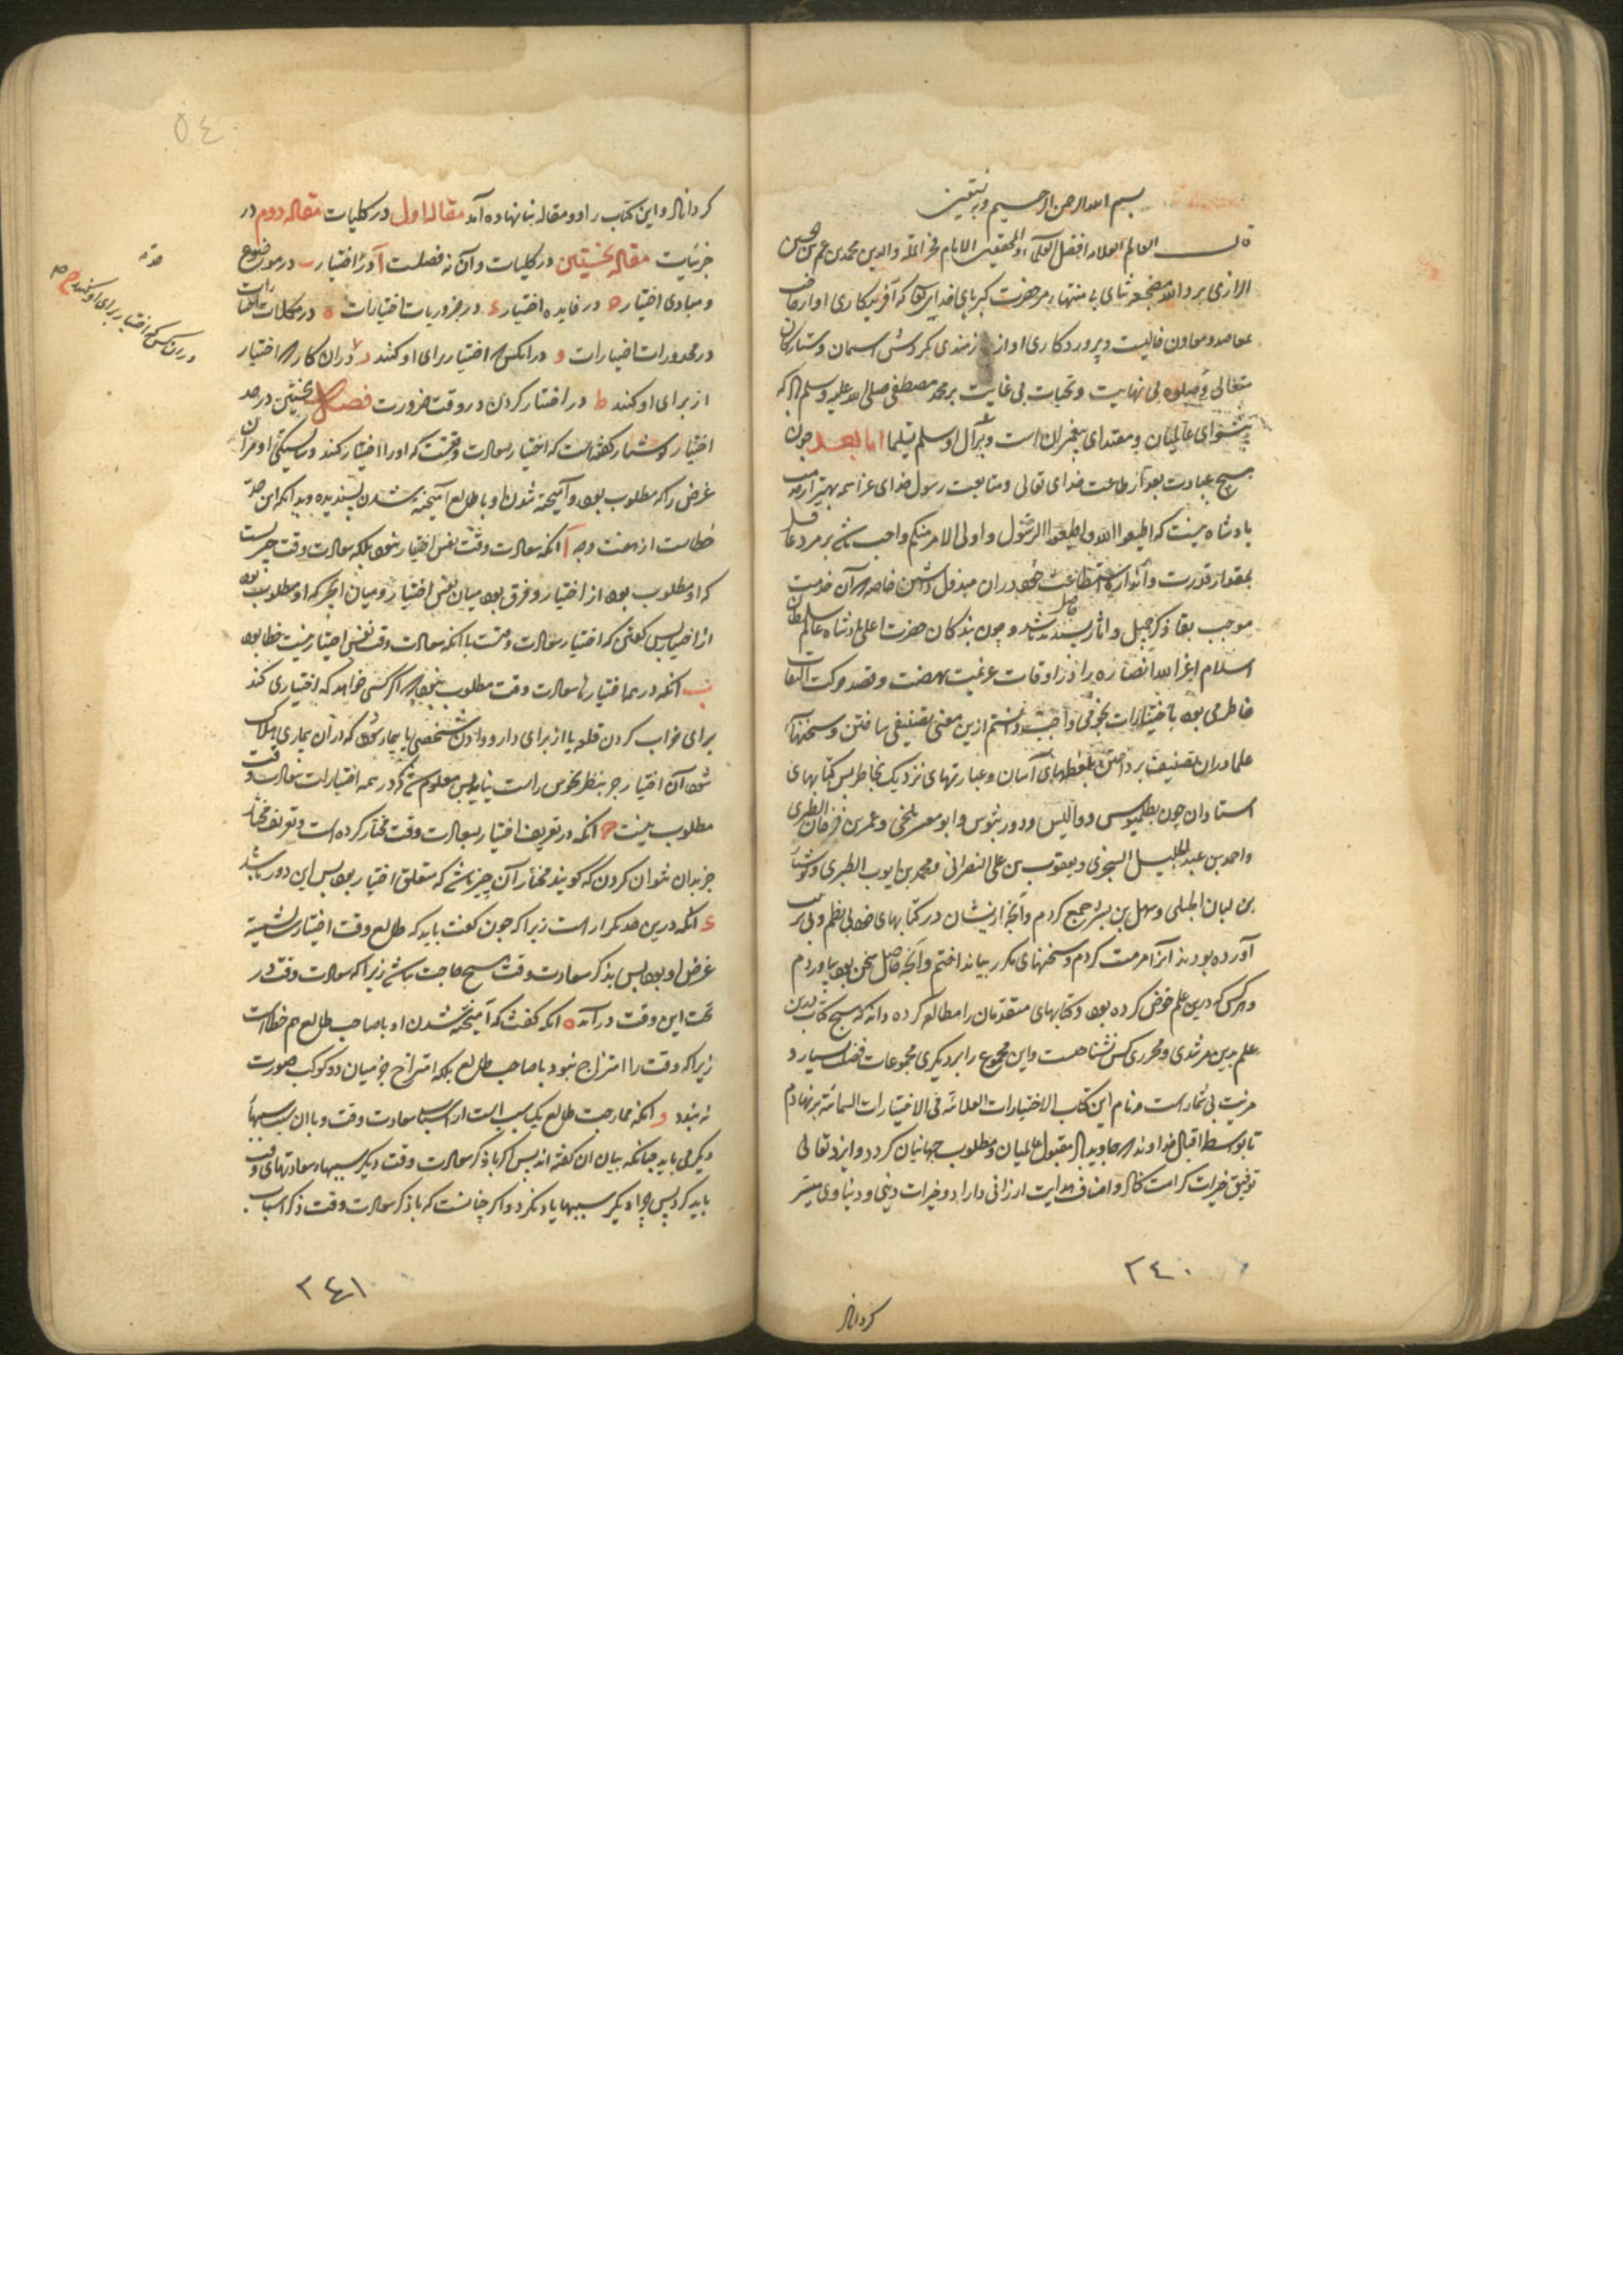 بسم الله الرحمن الرحیم وبه نستعین
قال العالم العلامه افضل العلماء والمحققین الامام فخر المله والدین محمد بن عمر بن الحسین
الرازی برد الله مضجعه ثنای بی منتها بر حضرت کبریای خدایی که آفریدکاری او از
معاضد و معاون خالیست و پروردکاری او از نیازمندی بکردش اسمان و ستارکان
متعالی و صلوة بی نهایت و تحیات بی غایت بر محمد مصطفی صلی الله علیه وسلم که
پیشوای عالمیان و مقتدای پیغمبران است و بر آل او سلم تسلیما اما بعد چون
هیچ عبادت بعد از طاعت خدای تعالی و متابعت رسول خدای عز اسمه بهتر از خدمت
بادشاه نیست که اطیعوا الله و اطیعوا الرسول و اولی الامر منکم واجب باشد بر مرد عاقل
بمقدار قدرت و اندازه استطاعت خود در ان مبذول داشتن خاصه آن خدمت
موجب بقاء ذکر جمیل و اثار پسندیده باشد و چون بندکان حضرت اعلی بادشاه عالم سلطان
اسلام اعز الله انصاره را در اوقات عزیمت نهضت و قصد حرکت التفات
خاطر می بود باختیارات نجومی واجب دانستم ازین معنی تصنیفی ساختن و سخنهای
علما در ان تصنیف پرداختن بلفظهای آسان و عبارتهای نزدیک بخاطر پس کتابهای
استادان چون بطلمیوس و والیس و دورنیوس و ابو معشر بلخی و عمر بن فرخان الطبری
و احمد بن عبد الجلیل السجزی و یعقوب بن علی النصرانی و محمد بن ایوب الطبری و کوشیار
بن لبان الجیلی و سهل بن بشر جمع کردم و آنچه ازیشان در کتابهای خود بی نظم و بی ترتیب
آورده بودند آنرا مرمت کردم و سخنهای مکرر بینداختم و آنچه حاصل سخن بود بیاوردم
و هر کس که درین علم خوض کرده بود و کتابهای متقدمان را مطالعه کرده داند که هیچ کتاب درین
علم بدین مرشدی و محرری کس نساختست و این مجموع را بر دیکری مجموعات فضل بسیار و
مزیت بی شمار است و نام این کتاب الاختیارات العلائیه فی الاختیارات السمائیه بر نهادم
تا بواسطه اقبال خداوند جاوید مقبول عالمیان و مطلوب جهانیان کردد و ایزد تعالی
توفیق خیرات کرامت کناد و اصناف هدایت ارزانی داراد و خیرات دینی و دنیاوی میسر
۲۴۰
کرداناد
۵۴
کرداناد و این کتاب را دو مقاله بنا نهاده آمد مقاله اول در کلیات مقاله دوم در
جزئیات مقاله نخستین در کلیات و آن نه فصلست آ در حد اختیار ب در موضوع
و مبادی اختیار ج در فایده اختیار د در ضروریات اختیارات ه در مکملات اختیارات
در محذورات اختیارات و در انکس که اختیار برای او کنند ز در ان کار که اختیار
از برای او کنند ط در اختیار کردن در وقت ضرورت فصل نخستین در حد
اختیار کوشیار کفته است که اختیار سعادت وقتیست که او را اختیار کنند و بستکی او مر آن
غرض را که مطلوب بود و آمیخته شدن او با طالع آمیخته شدن پسندیده و بدانکه این حد
خطاست از هفت وجه آ انکه سعادت وقت نفس اختیار نبود بلکه سعادت وقت چیزیست
که او مطلوب بود از اختیار و فرق بود میان نفس اختیار و میان انچیز که او مطلوب بود
از اختیار پس کفتن که اختیار سعادت وقتست با انکه سعادت وقت نفس اختیار نیست خطا بود
ب انکه در همه اختیارها سعادت وقت مطلوب نبود اکر کسی خواهد که اختیاری کند
برای خراب کردن قلعه یا از برای دارو دادن شخصی یا بیمار شود که در آن بیماری هلاک
شود آن اختیار جز بنظر نحوس راست نیاید پس معلوم شد که در همه اختیارات سعادت وقت
مطلوب نیست ج انکه در تعریف اختیار سعادت وقت مختار کرده است و تعریف مختار
جز بدان نتوان کردن که کویند مختار آن چیز باشد که متعلق اختیار بود پس این دور باشد
د انکه درین حد تکرار است زیرا که چون کفت باید که طالع وقت اختیار نسبتیه
غرض او بود پس بذکر سعادت وقت هیچ حاجت نباشد زیرا که سعادت وقت در
تحت این وقت در آمد ه انکه کفت که آمیخته شدن او با صاحب طالع هم خطاست
زیرا که وقت را امتزاج نبود با صاحب طالع بلکه امتزاج جز میان دو کوکب صورت
نه بندد و انکه ممازجت طالع یک سبب است از اسباب سعادت وقت و با ان سببها
دیکر می باید چنانکه بیان ان کفته اند پس اکر با ذکر سعادت وقت دیکر سببها و سعادتهای وقت
باید کرد پس چرا دیکر سببها یاد نکرد و اکر چنانست که با ذکر سعادت وقت ذکر اسباب
در ان کس که اختیار برای او کنند ح
۲۴۱